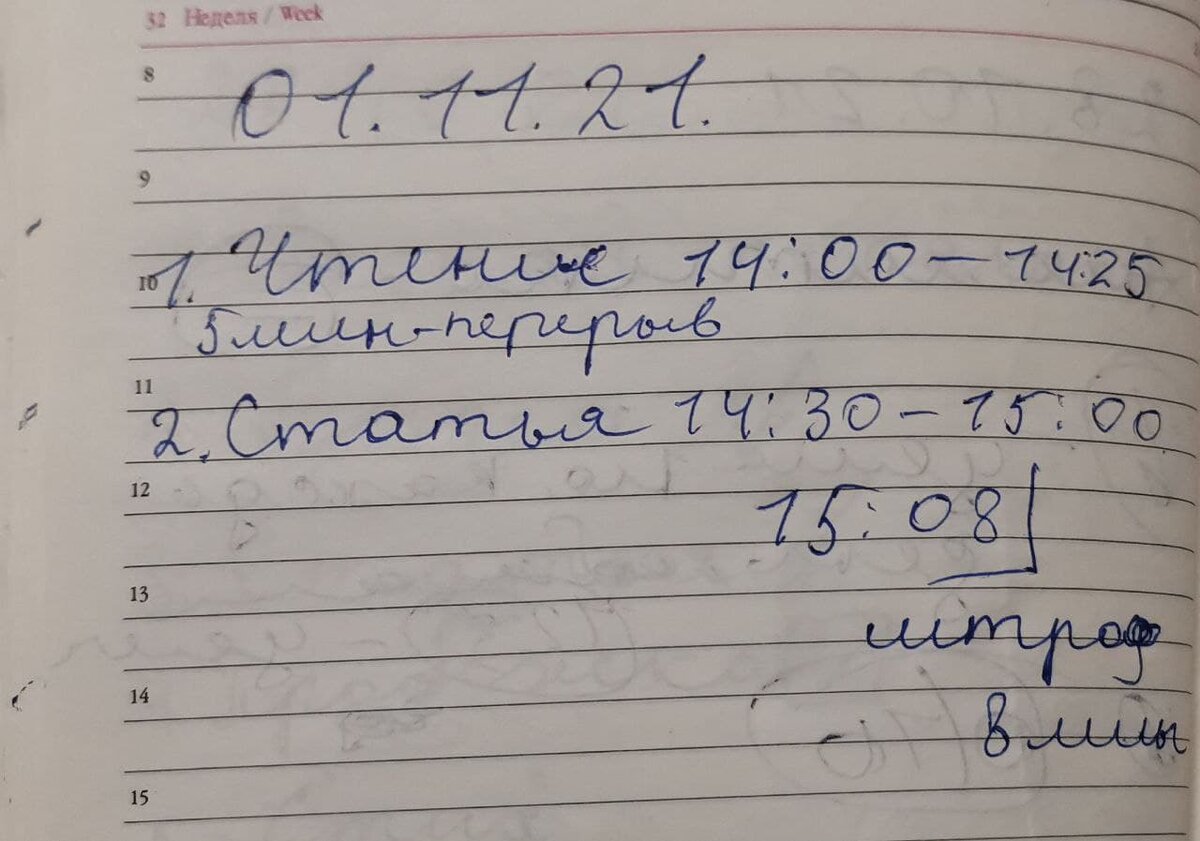 32 Неделя / Week
8
01.11.21.
9
10
1. Чтение 14:00 – 14:25
5 мин-перерыв
11
2. Статья 14:30 – 15:00
12
15:08
13
штраф
14
8 мин
15